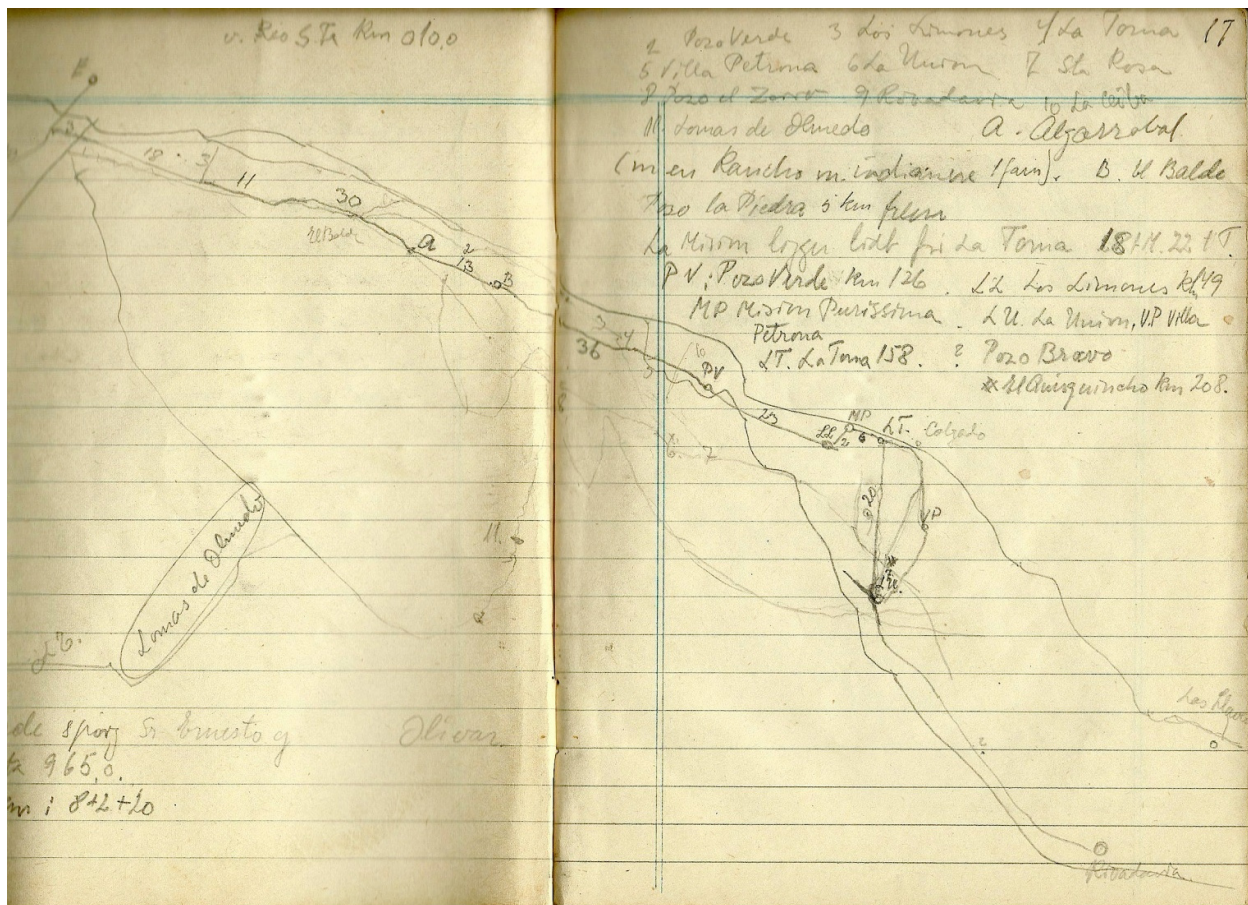 v. Rio S. Fe Km 010,0
E
18
3
11
30
El Balde
a
2
13
B
Lomas de Olmedo
11.
de spørg Sr Ernesto g Olivar
965,0.
8+2+20
17
2 Pozo Verde 3 Los Limones 4 La Toma
5 Villa Petrona 6 La Union 7 Sta Rosa
8 Pozo el Zorro 9 Rivadavia 10 La Ceiba
11 Lomas de Olmedo A. Algarrobal
(m en Rancho m. indianere 1 fam). B. El Balde
Pozo la Piedra 5 km frem
La Mision ligger lidt før La Toma
PV: Pozo Verde Km 126. LL Los Limones Km 149
MP Mision Purissima. LU. La Union, V.P Villa
Petrona
LT. La Toma 158. ? Pozo Bravo
* El Quirquincho Km 208.
3
4
36
10
PV
23
MP
LL
2
6
LT.
Colgado
7
20
VP
LU.
Las
?
Rivadavia